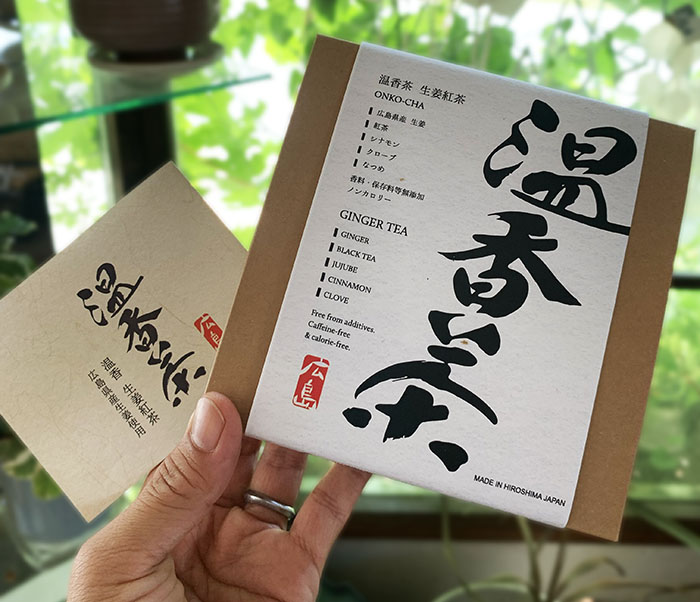 温香茶 生姜紅茶
ONKO-CHA
広島県産 生姜
紅茶
シナモン
クローブ
なつめ
香料・保存料等無添加
ノンカロリー
GINGER TEA
GINGER
BLACK TEA
JUJUBE
CINNAMON
CLOVE
Free from additives.
Caffeine-free
& calorie-free.
広島
温香茶
MADE IN HIROSHIMA JAPAN
温香茶
広島
温香 生姜紅茶
広島県産生姜使用